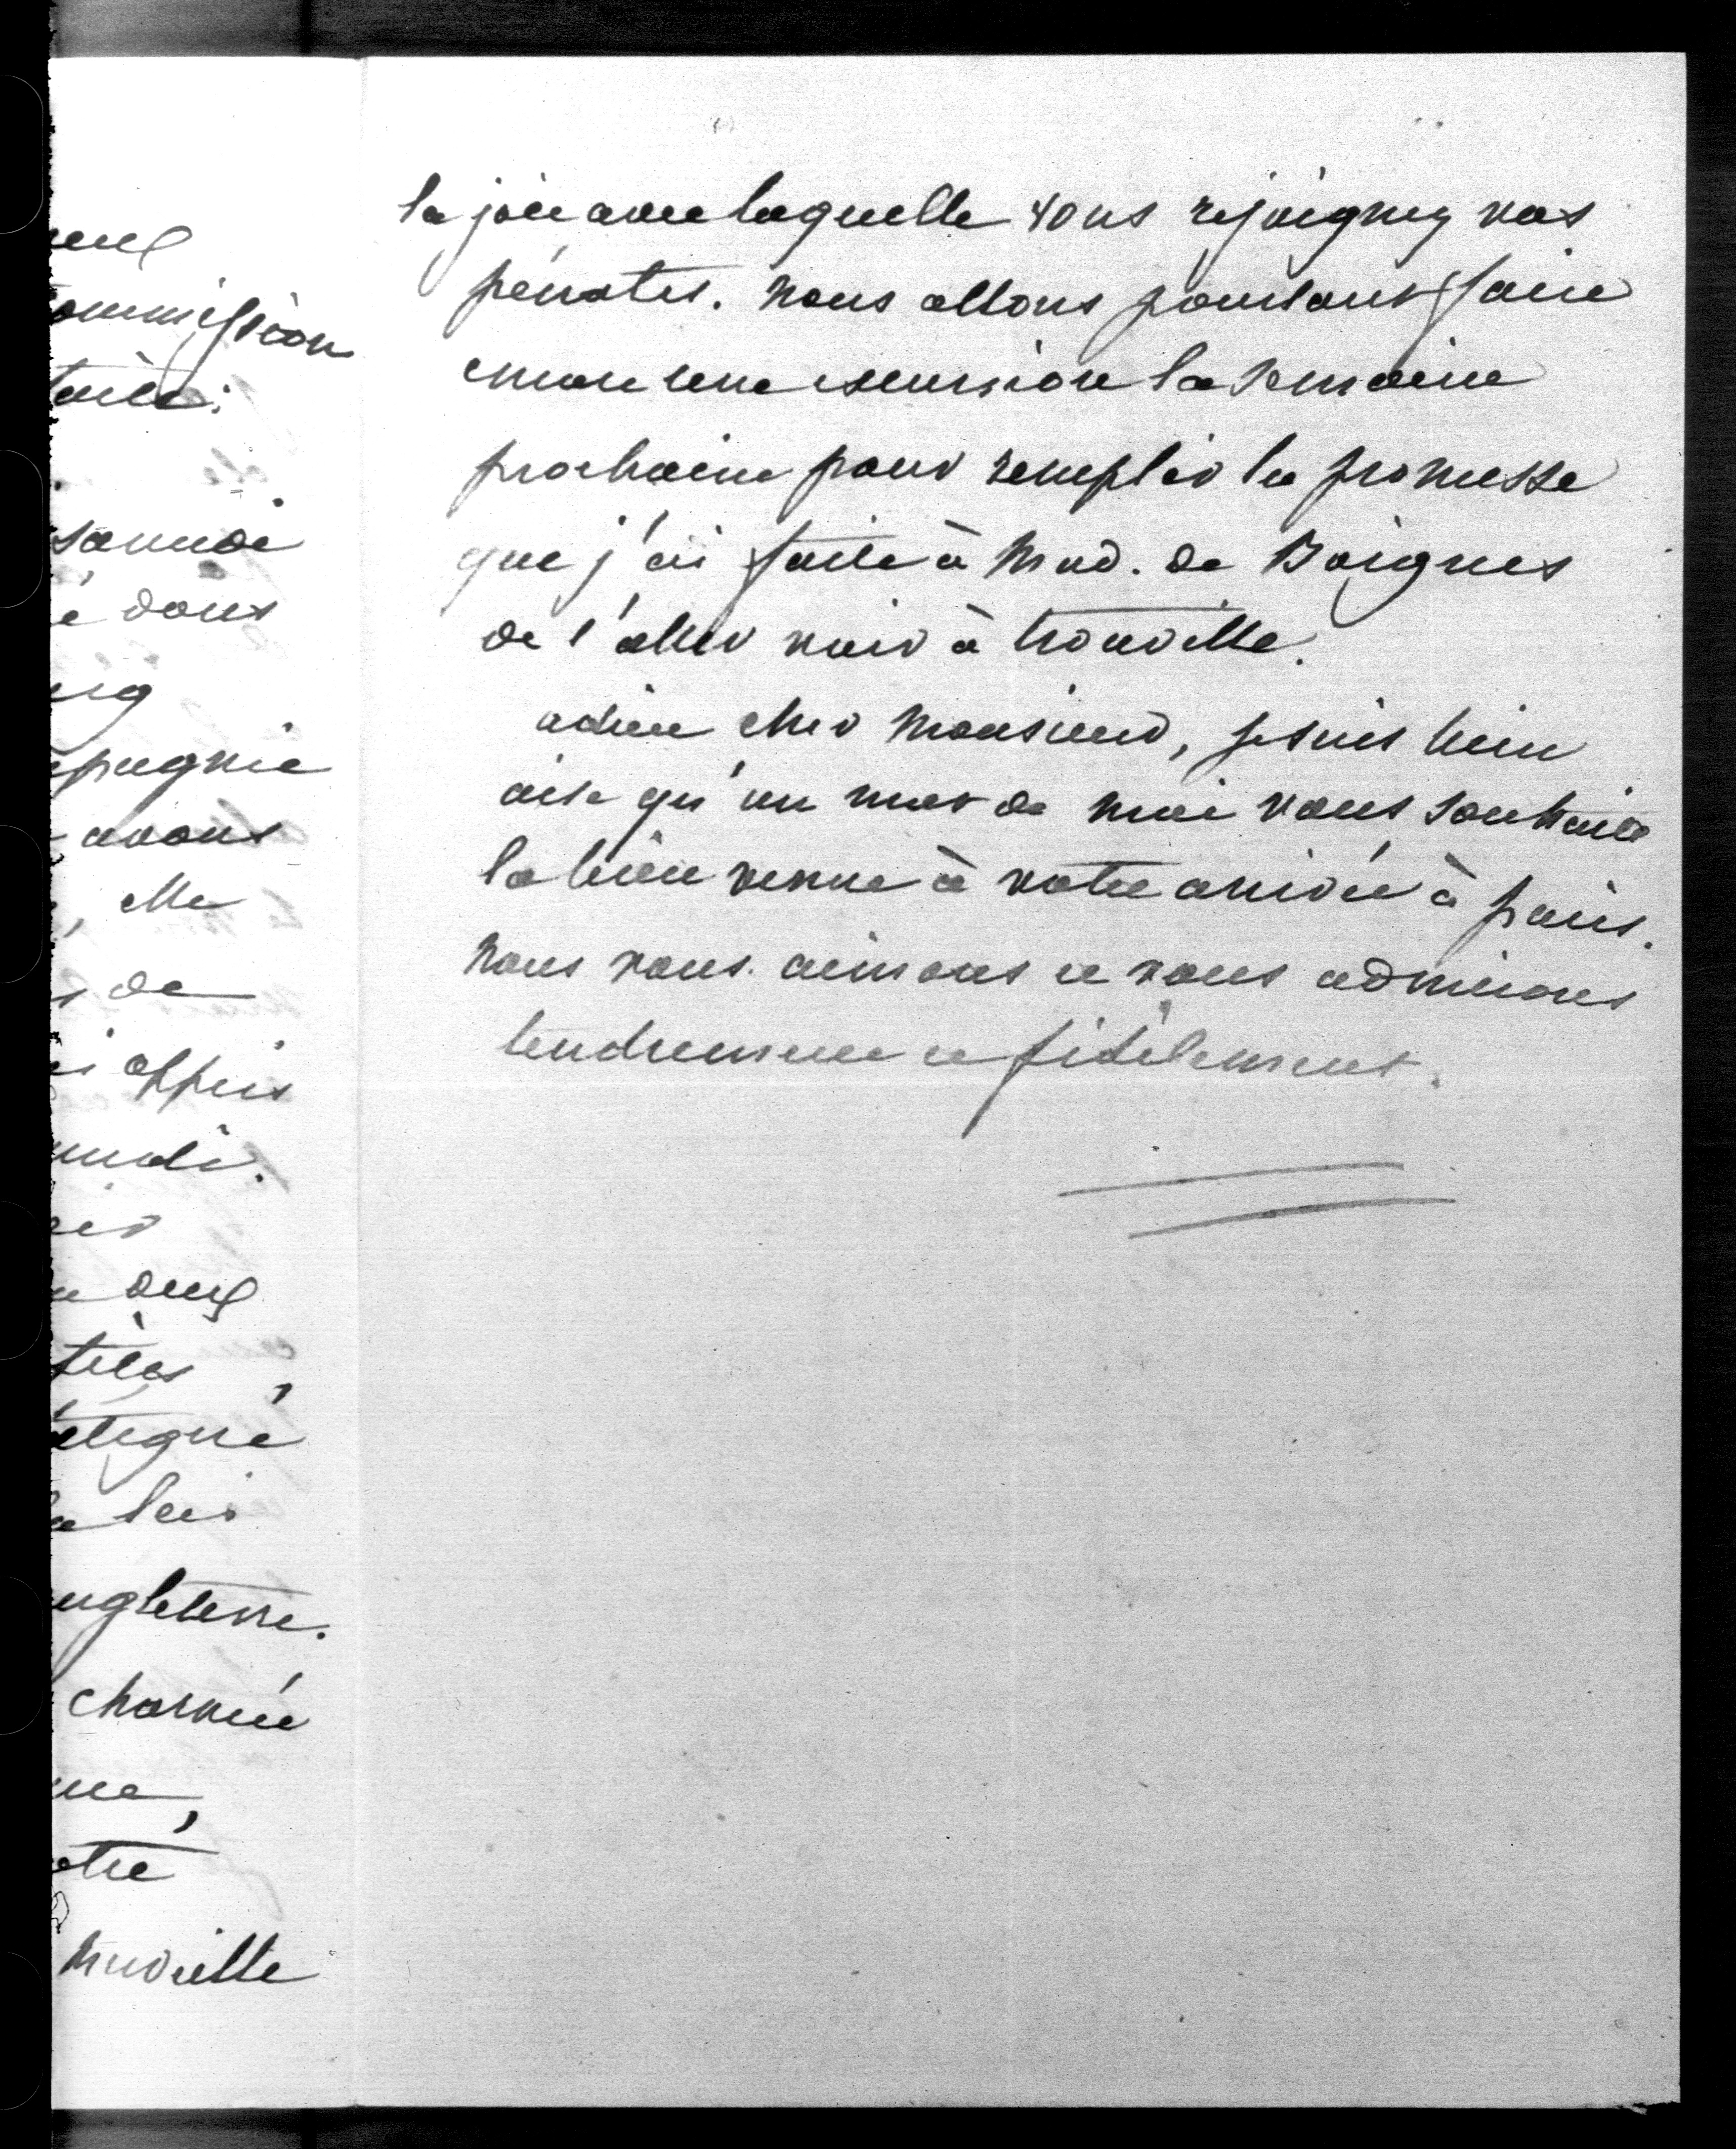 eux
ommission
taile:
samedi
é dans
erg
epagnie
avons
, elle
s de
i appris
medi.
oir
deux
telas,
étigné
lui
angleterre.
charmée
me,
otre
nuvielle
la joie avec laquelle vous rejoignez vos
pénates. nous allons pourtant faire
encore une excursion la semaine
prochaine pour remplir la promesse
que j'ai faite à Mad. de Boignes
de l'aller voir à trouville.
adieu cher Monsieur, je suis bien
aise qu'un mot de moi vous souhaite
la bien venue à votre arrivée à paris.
Nous vous aimons et vous admirons
tendrement et fidèlement.